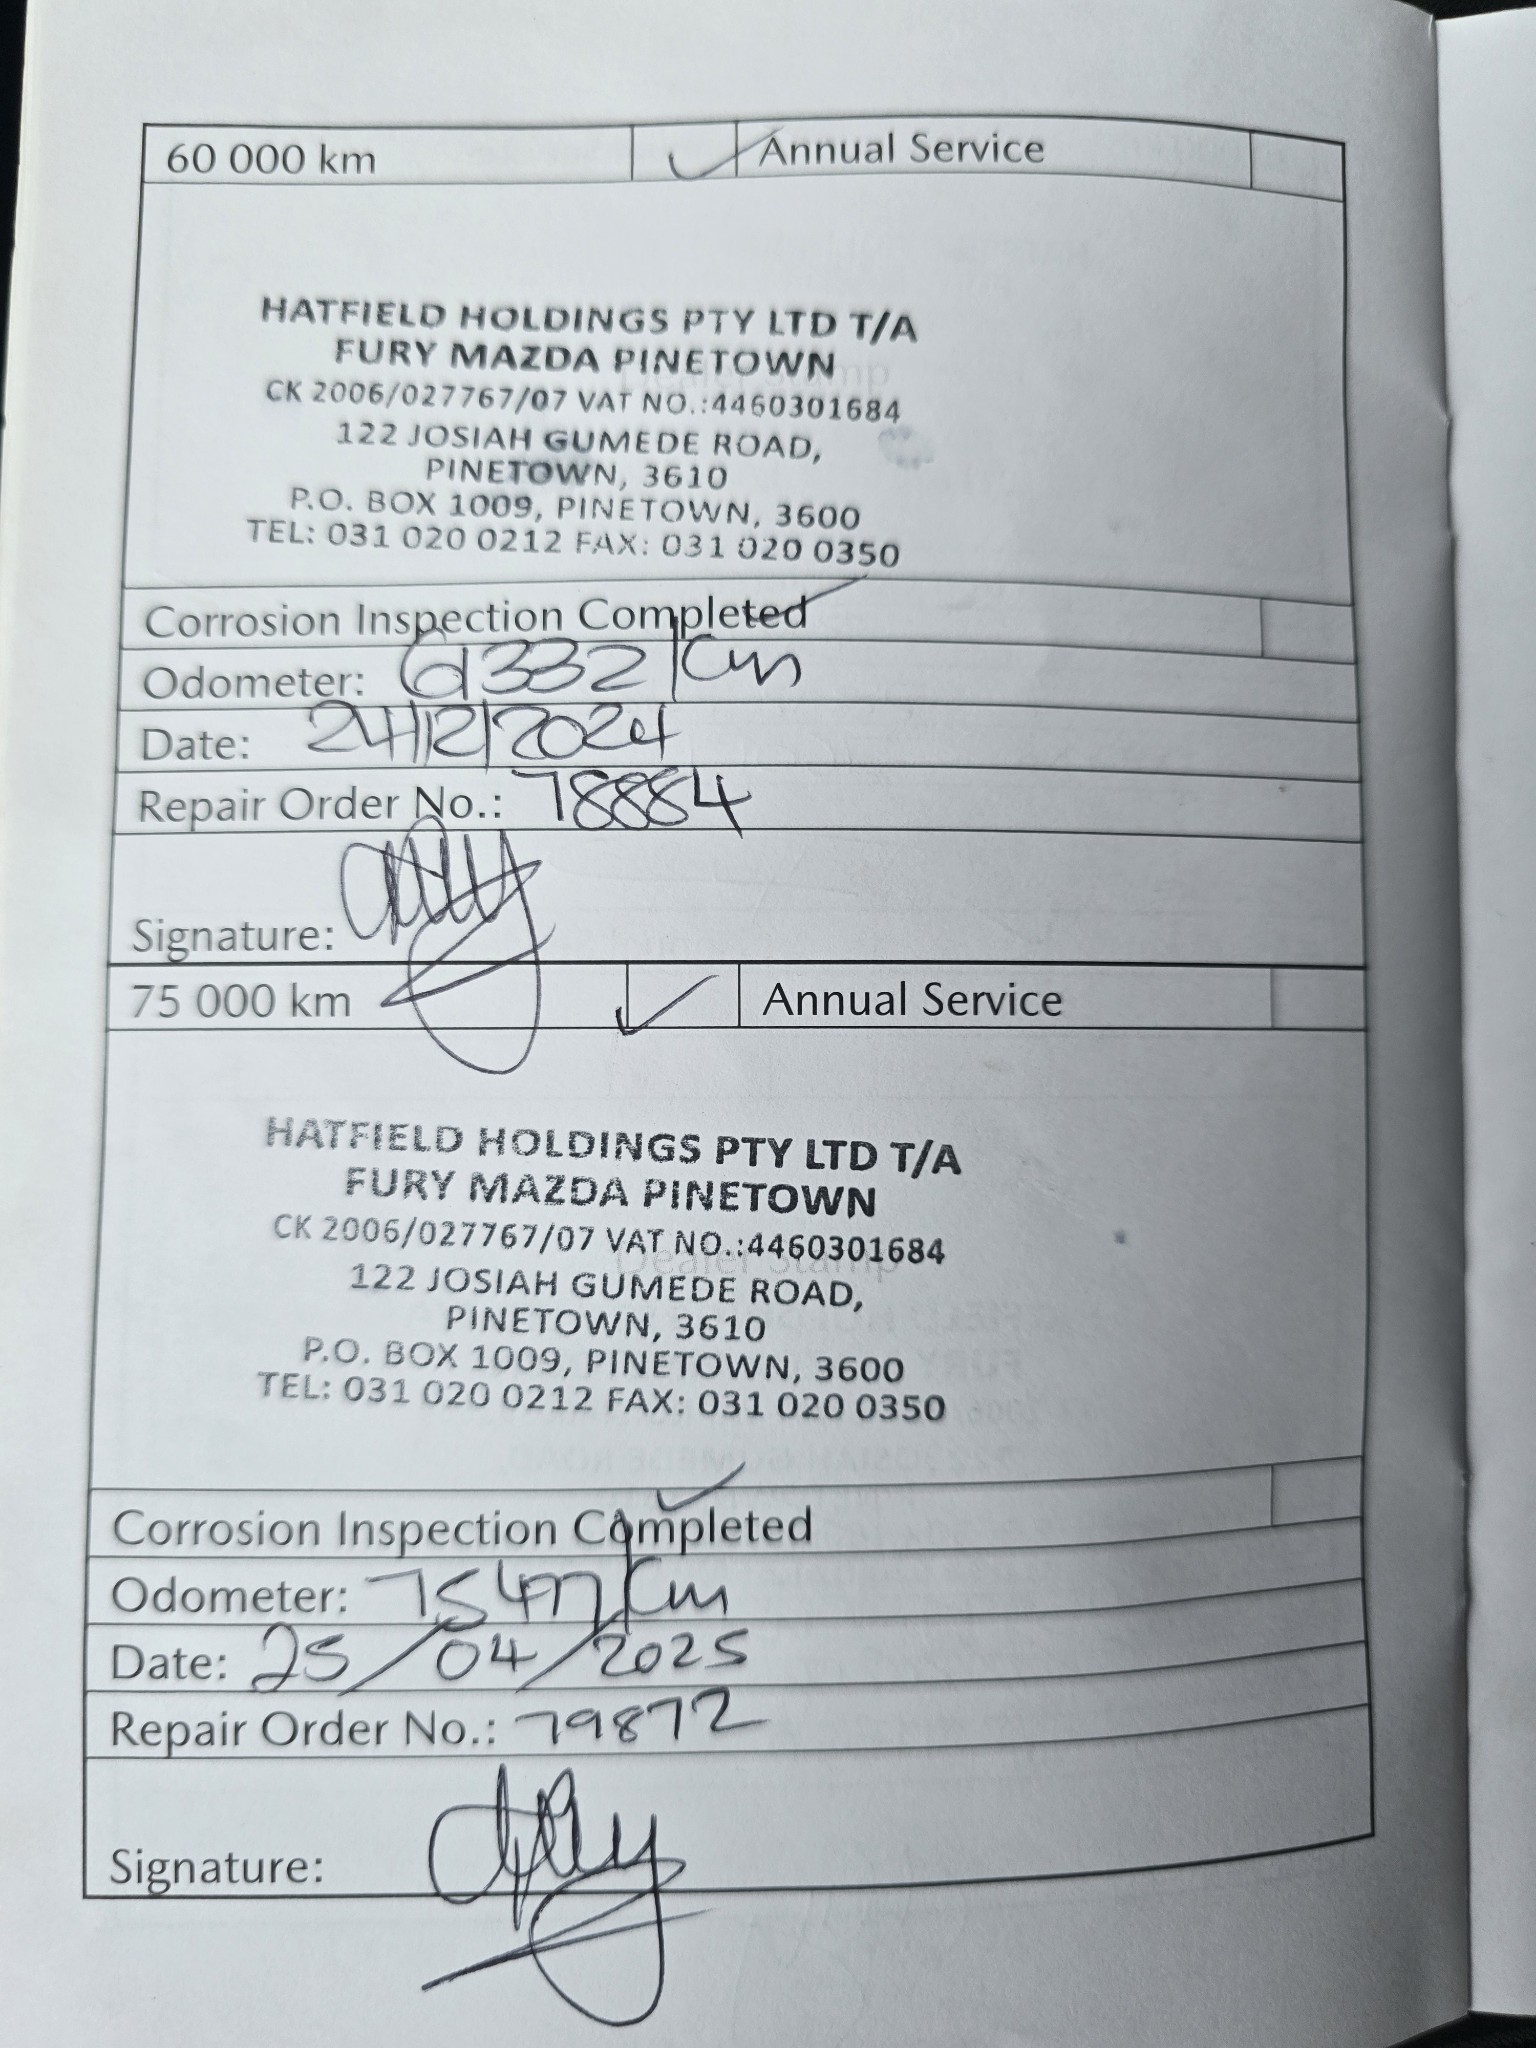 60 000 km Annual Service
HATFIELD HOLDINGS PTY LTD T/A
FURY MAZDA PINETOWN
CK 2006/027767/07 VAT NO.:4460301684
122 JOSIAH GUMEDE ROAD,
PINETOWN, 3610
P.O. BOX 1009, PINETOWN, 3600
TEL: 031 020 0212 FAX: 031 020 0350
Corrosion Inspection Completed
Odometer: 61332 km
Date: 24/12/2024
Repair Order No.: 78884
Signature:
75 000 km Annual Service
HATFIELD HOLDINGS PTY LTD T/A
FURY MAZDA PINETOWN
CK 2006/027767/07 VAT NO.:4460301684
Dealer Stamp
122 JOSIAH GUMEDE ROAD,
PINETOWN, 3610
P.O. BOX 1009, PINETOWN, 3600
TEL: 031 020 0212 FAX: 031 020 0350
Corrosion Inspection Completed
Odometer: 75477 km
Date: 25/04/2025
Repair Order No.: 79872
Signature: